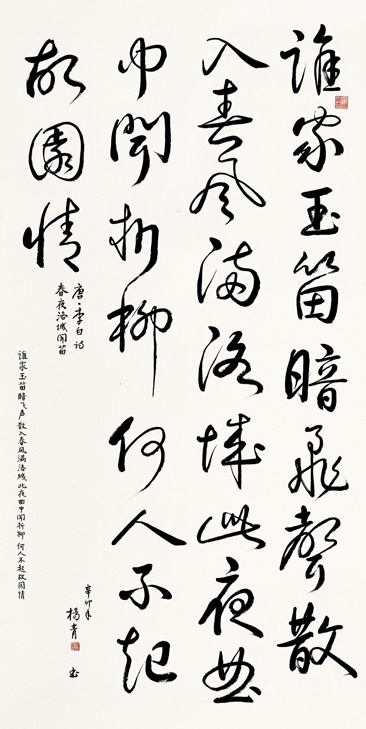 誰家玉笛暗飛聲散
入春風滿洛城此夜曲
中聞折柳何人不起
故園情
唐·李白诗
春夜洛城闻笛
谁家玉笛暗飞声 散入春风满洛城 此夜曲中闻折柳 何人不起故园情
辛卯年
楊青
书